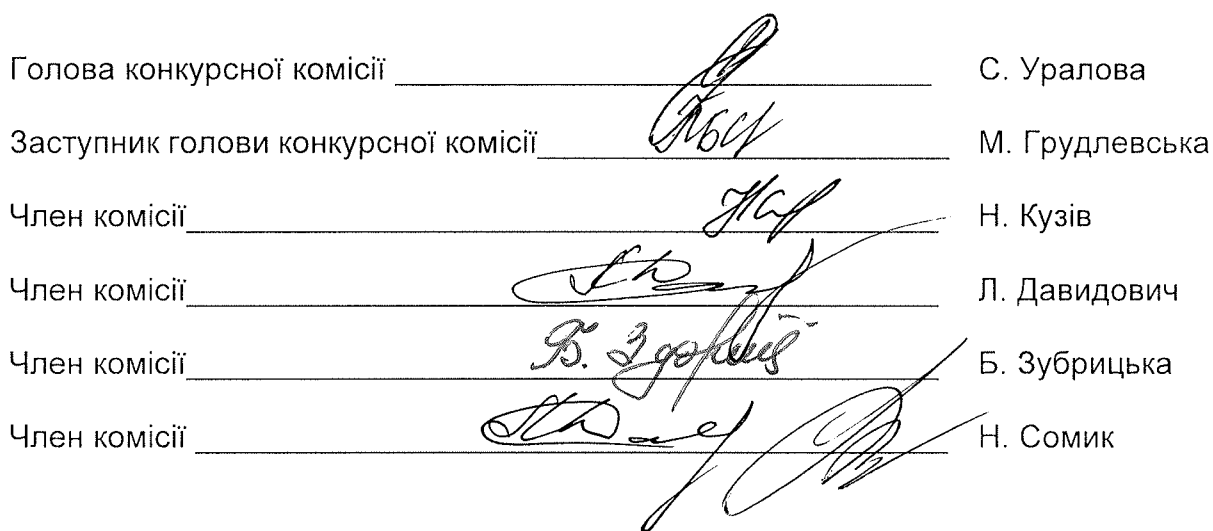 Голова конкурсної комісії С. Уралова
Заступник голови конкурсної комісії М. Грудлевська
Член комісії Н. Кузів
Член комісії Л. Давидович
Член комісії Б. Зубрицька
Член комісії Н. Сомик